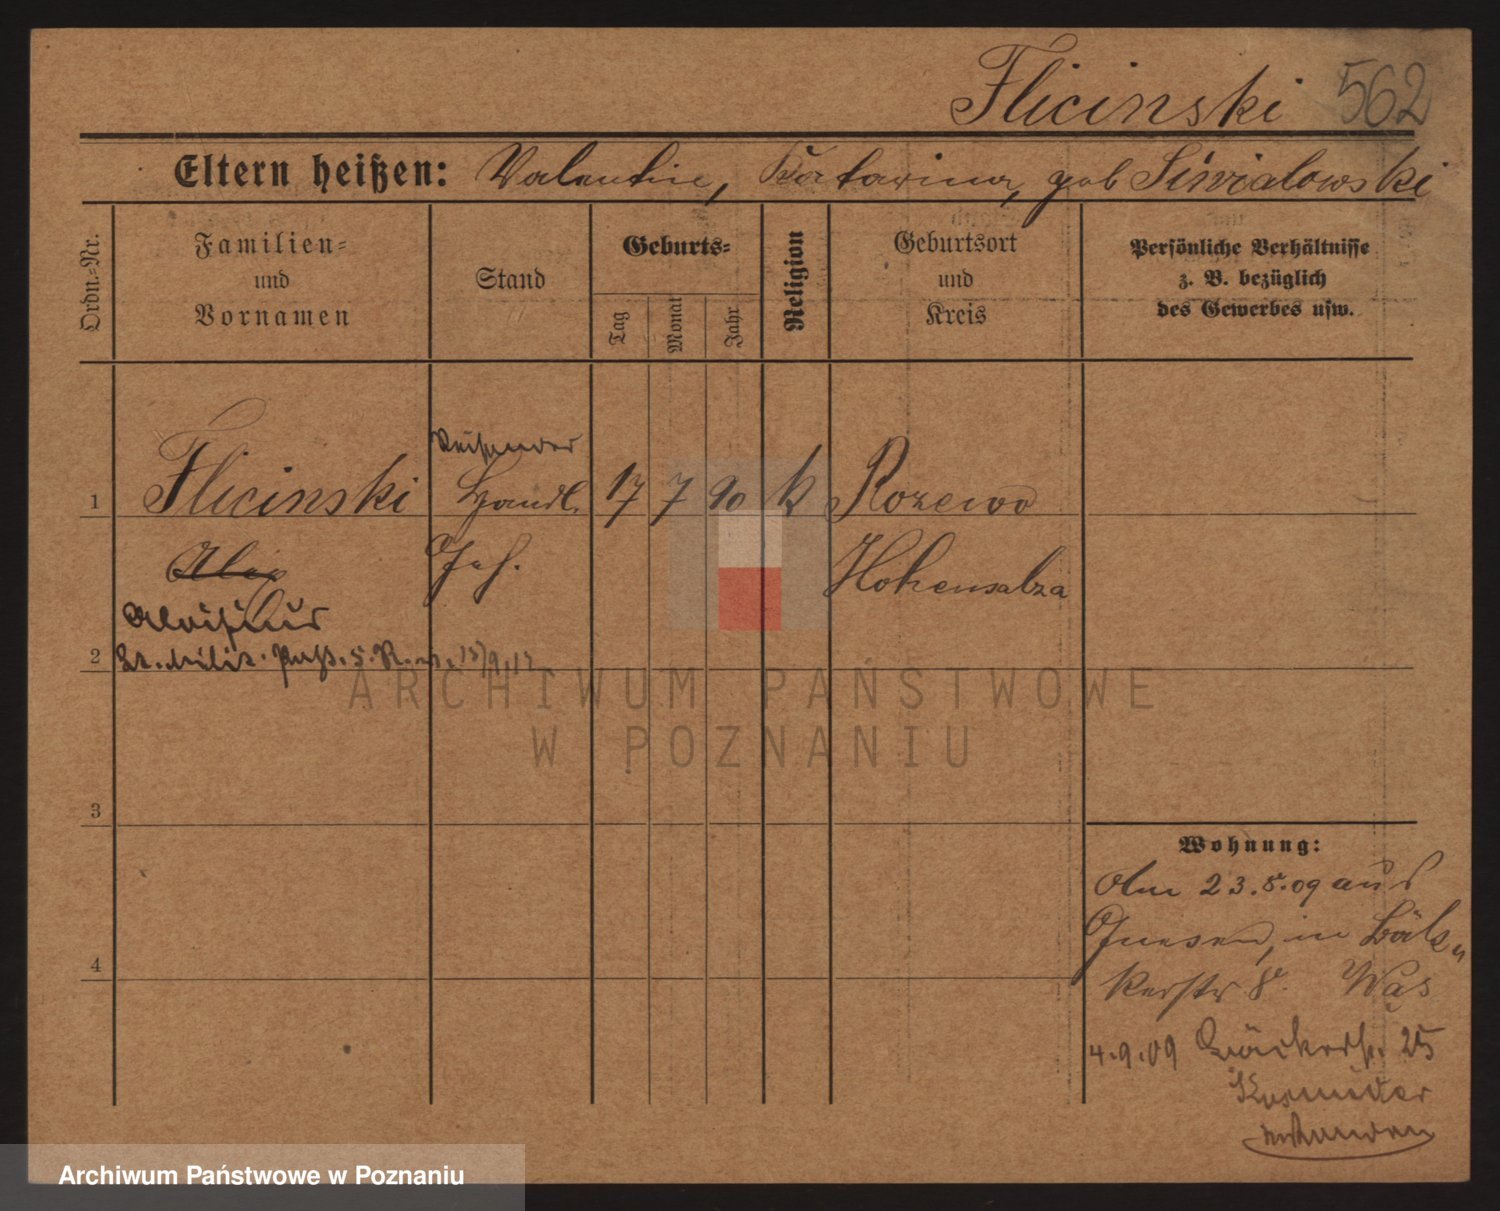 Flicinski 562
Eltern heißen: Valentin, Katarina, geb Siwialowski
Ordn.-Nr.
Familien- und Vornamen
Stand
Geburts-
Tag
Monat
Jahr
Religion
Geburtsort und Kreis
Persönliche Verhältnisse
z. B. bezüglich
des Gewerbes usw.
Reisender
1 Flicinski Handl. 17 7 90 k Rozewo
Geh. Hohensalza
Aloisius
2 Lt. Milit. Paß. 13/9.17
3
4
Wohnung:
Am 23.5.09 aus
Gnesen, in Bäk
kerstr 8.
4.9.09 Bäckerstr. 25
ARCHIWUM PAŃSTWOWE
W POZNANIU
Archiwum Państwowe w Poznaniu